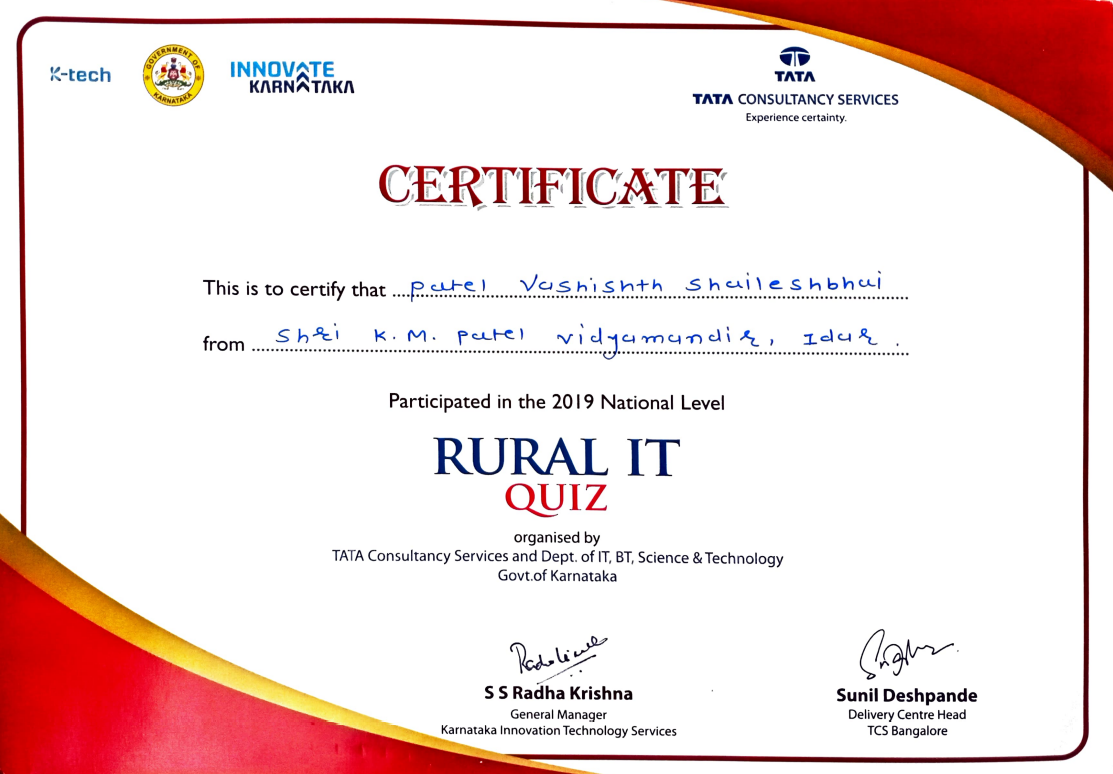 K-tech
GOVERNMENT OF KARNATAKA
INNOVATE KARNATAKA
TATA
TATA CONSULTANCY SERVICES
Experience certainty.
CERTIFICATE
This is to certify that patel Vashishth shaileshbhai
from Shri K. M. patel vidyamandir, Idar.
Participated in the 2019 National Level
RURAL IT
QUIZ
organised by
TATA Consultancy Services and Dept. of IT, BT, Science & Technology
Govt.of Karnataka
S S Radha Krishna
General Manager
Karnataka Innovation Technology Services
Sunil Deshpande
Delivery Centre Head
TCS Bangalore